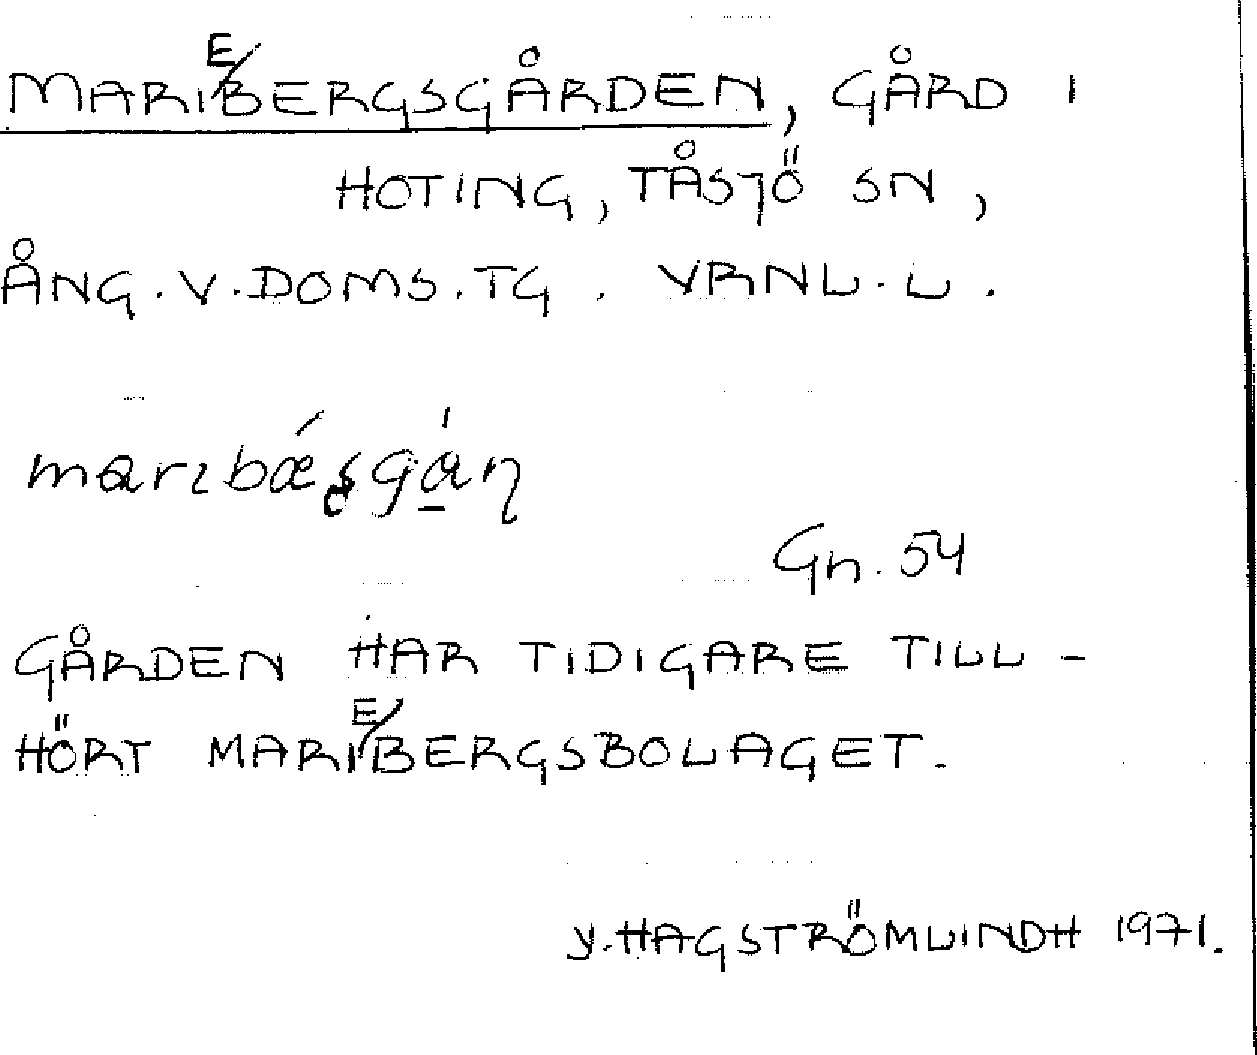 MARIEBERGSGÅRDEN, GÅRD I
HOTING, TÅSJÖ SN,
ÅNG. V. DOMS. TG. VRNL. L.
Gn. 54
GÅRDEN HAR TIDIGARE TILL-
HÖRT MARIEBERGSBOLAGET.
Y. HAGSTRÖMLINDH 1971.